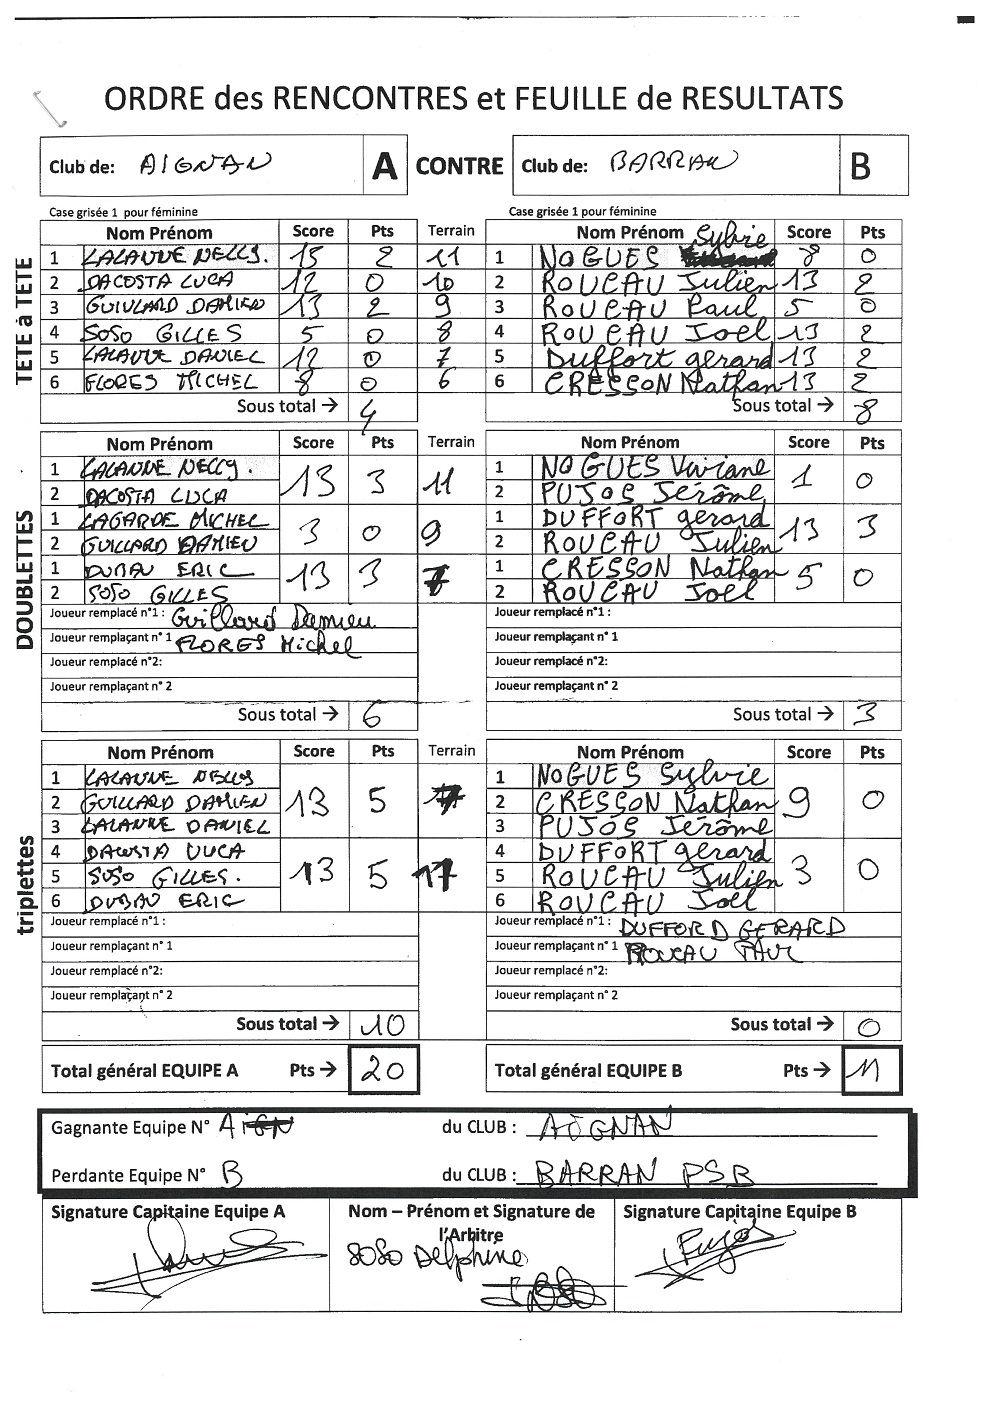 ORDRE des RENCONTRES et FEUILLE de RESULTATS
Club de: AIGNAN A CONTRE Club de: BARRAN B
Case grisée 1 pour féminine Case grisée 1 pour féminine
TETE à TETE
Nom Prénom Score Pts Terrain Nom Prénom Sylvie Score Pts
1 LALANNE NELLY. 13 2 11 1 NOGUES 8 0
2 DACOSTA LUCA 12 0 10 2 ROUCAU Julien 13 2
3 GUILLARD DAMIEN 13 2 9 3 ROUCAU Paul 5 0
4 SOSO GILLES 5 0 8 4 ROUCAU Joel 13 2
5 LALANNE DANIEL 12 0 7 5 Duffort gerard 13 2
6 FLORES MICHEL 8 0 6 6 CRESSON Nathan 13 2
Sous total → 4 Sous total → 8
DOUBLETTES
Nom Prénom Score Pts Terrain Nom Prénom Score Pts
1 LALANNE NELLY. 13 3 11 1 NOGUES Viviane 1 0
2 DACOSTA LUCA 2 PUJOS Jérôme
1 LAGARDE MICHEL 3 0 9 1 DUFFORT gerard 13 3
2 GUILLARD DAMIEN 2 ROUCAU Julien
1 DUBAU ERIC 13 3 7 1 CRESSON Nathan 5 0
2 SOSO GILLES 2 ROUCAU Joel
Joueur remplacé n°1 : Guillard Damien Joueur remplacé n°1 :
Joueur remplaçant n° 1 FLORES Michel Joueur remplaçant n° 1
Joueur remplacé n°2: Joueur remplacé n°2:
Joueur remplaçant n° 2 Joueur remplaçant n° 2
Sous total → 6 Sous total → 3
triplettes
Nom Prénom Score Pts Terrain Nom Prénom Score Pts
1 LALANNE NELLY 1 NOGUES Sylvie
2 GUILLARD DAMIEN 13 5 2 CRESSON Nathan 9 0
3 LALANNE DANIEL 3 PUJOS Jérôme
4 DACOSTA LUCA 4 DUFFORT gerard
5 SOSO GILLES. 13 5 5 ROUCAU Julien 3 0
6 DUBAU ERIC 6 ROUCAU Joel
Joueur remplacé n°1 : Joueur remplacé n°1 : DUFFORD GERARD
Joueur remplaçant n° 1 Joueur remplaçant n° 1 ROUCAU PAUL
Joueur remplacé n°2: Joueur remplacé n°2:
Joueur remplaçant n° 2 Joueur remplaçant n° 2
Sous total → 10 Sous total → 0
Total général EQUIPE A Pts → 20 Total général EQUIPE B Pts → 11
Gagnante Equipe N° A du CLUB : AIGNAN
Perdante Equipe N° B du CLUB : BARRAN PSB
Signature Capitaine Equipe A Nom – Prénom et Signature de l'Arbitre Signature Capitaine Equipe B
SOSO Delphine
Pujos